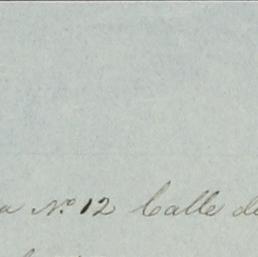 a Nº 12 Calle de